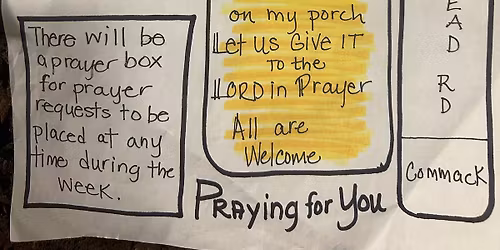 There will be
a prayer box
for prayer
requests to be
placed at any
time during the
week.
on my porch
Let us Give IT
To the
LORD in Prayer
All are
Welcome
Praying for You
E
A
D
R
D
Commack